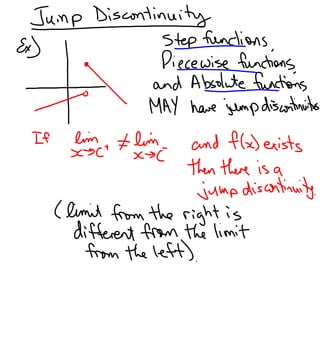 Jump Discontinuity
Ex)
Step functions,
Piecewise functions,
and Absolute functions
MAY have jump discontinuities
If lim x→c⁺ ≠ lim x→c⁻ and f(x) exists
then there is a
jump discontinuity.
(limit from the right is
different from the limit
from the left).